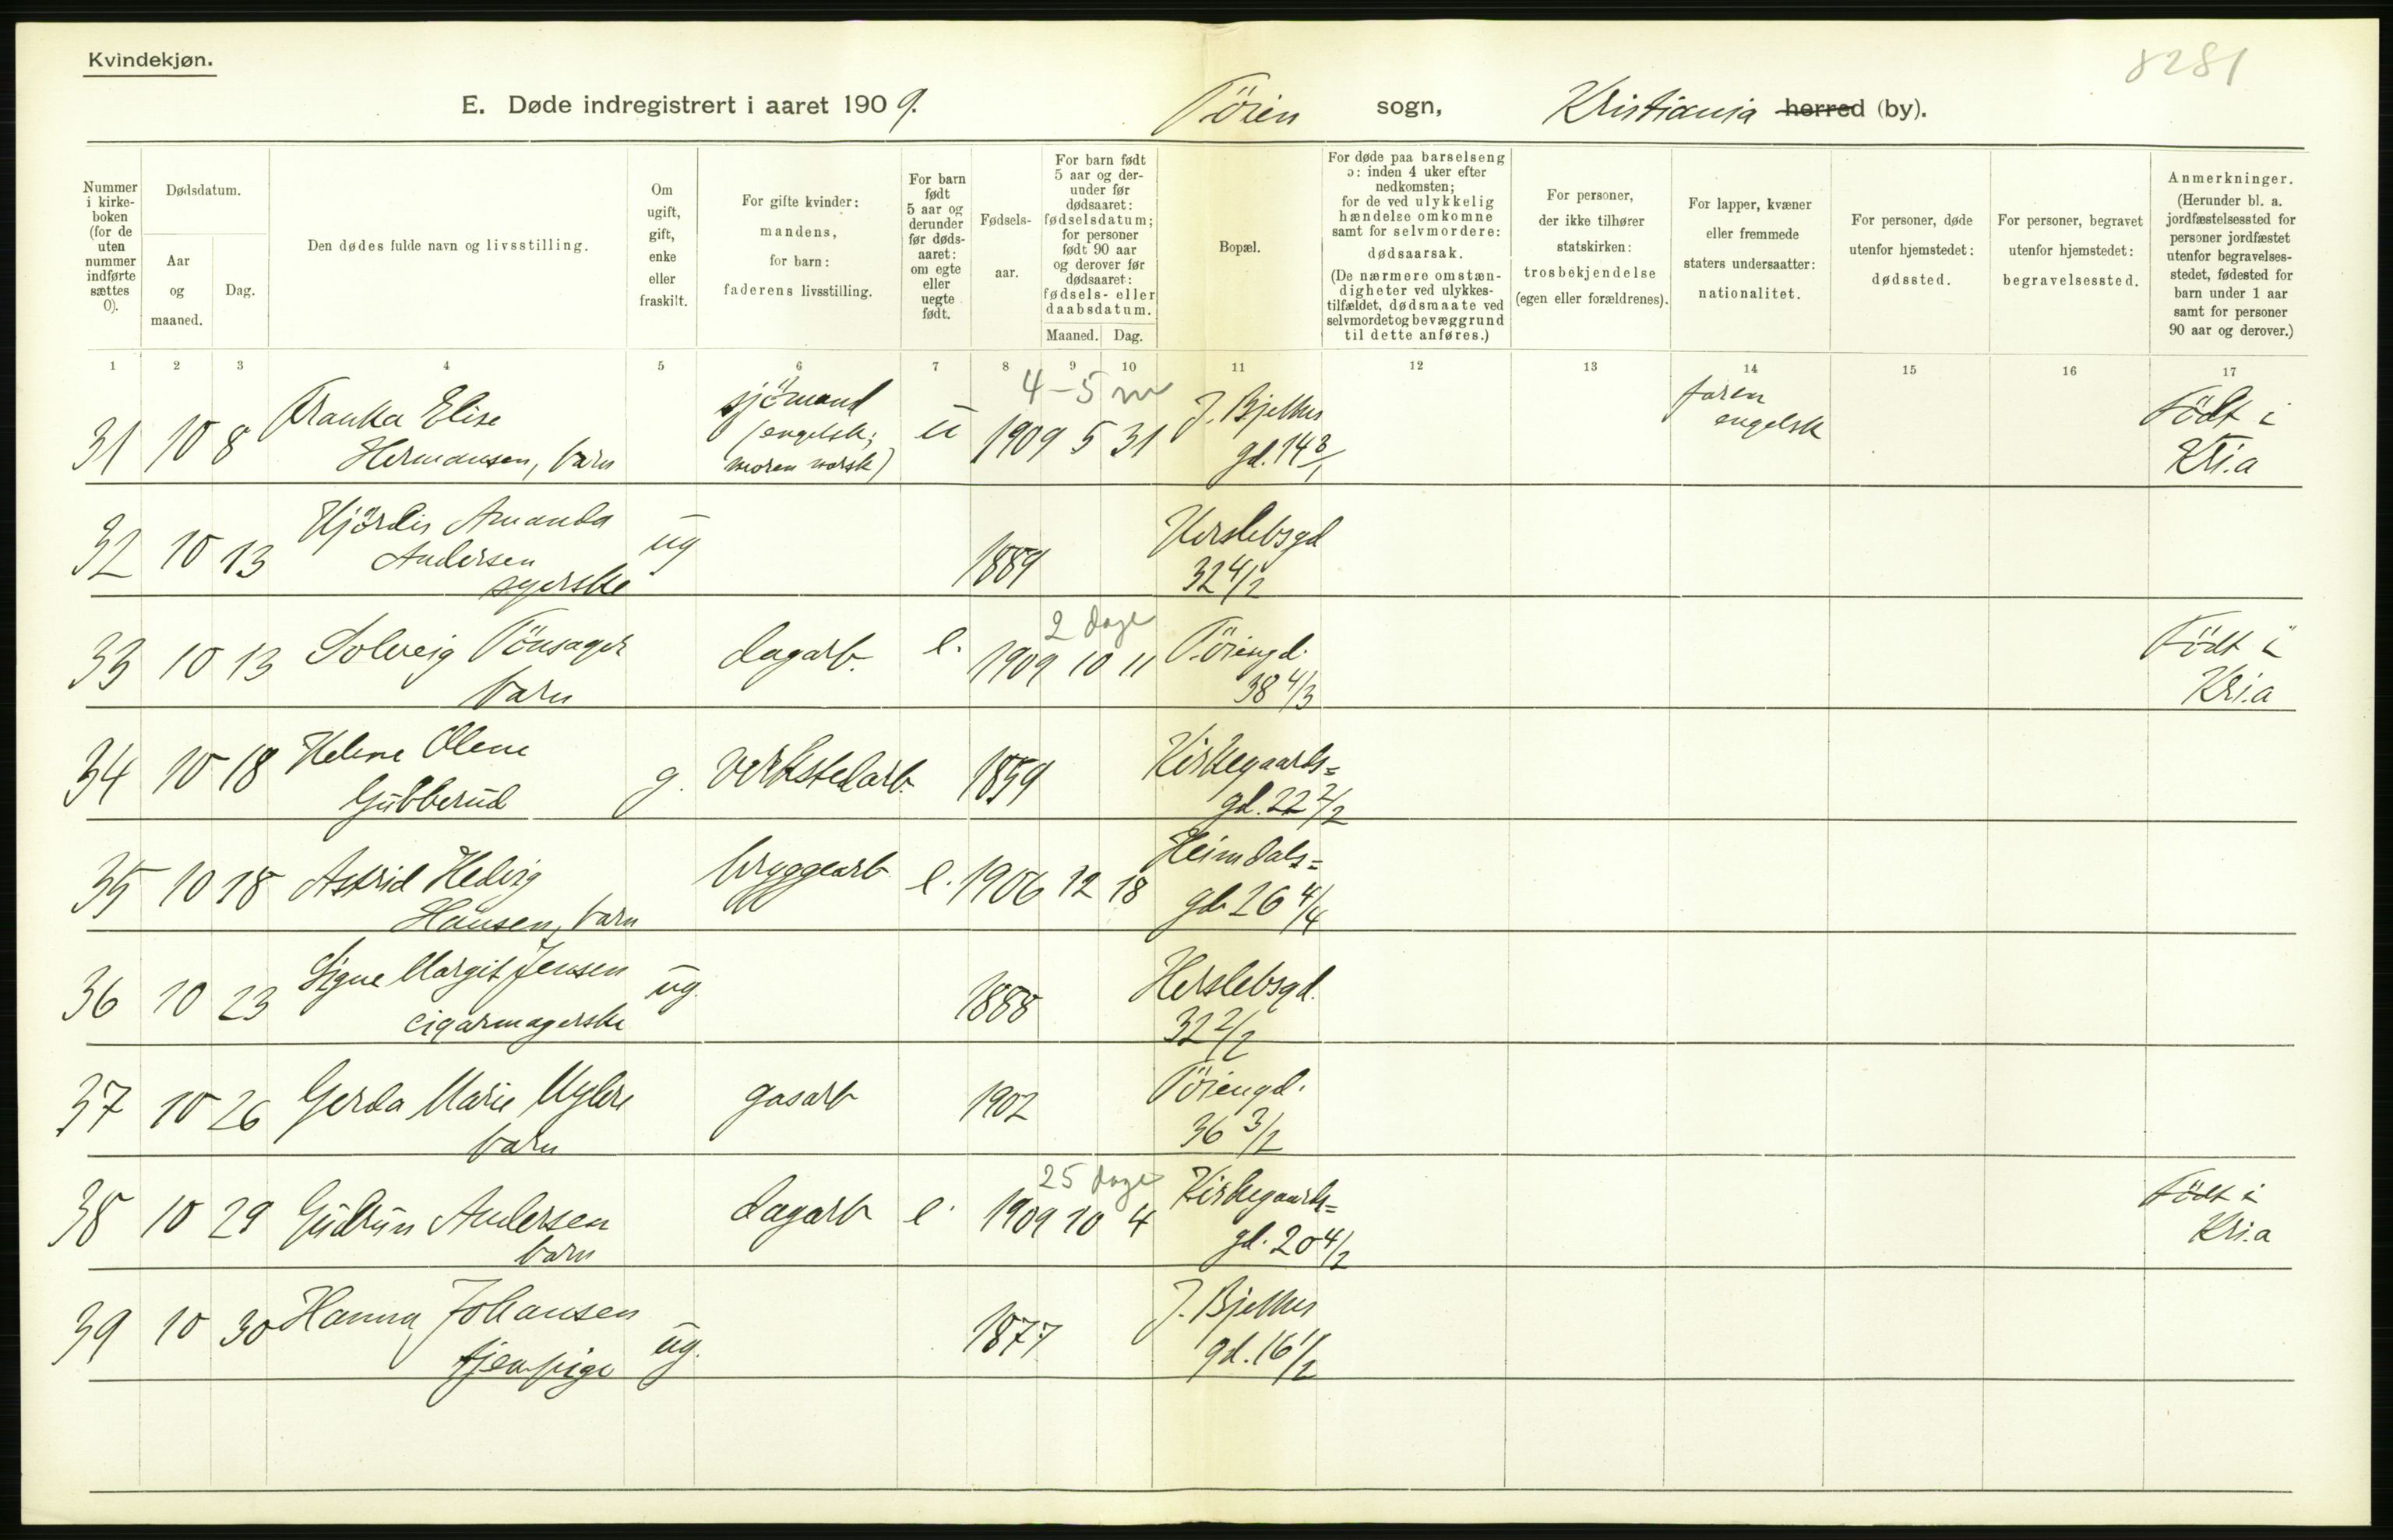 Kvindekjøn.
8281
E. Døde indregistrert i aaret 1909. Töien sogn, Kristiania herred (by).
Nummer i kirke-boken (for de uten nummer indførte sættes 0).
Dødsdatum.
Aar og maaned.
Dag.
Den dødes fulde navn og livsstilling.
Om ugift, gift, enke eller fraskilt.
For gifte kvinder: mandens, for barn: faderens livsstilling.
For barn født 5 aar og derunder før døds-aaret: om egte eller uegte født.
Fødsels-aar.
For barn født 5 aar og der-under før dødsaaret: fødselsdatum; for personer født 90 aar og derover før dødsaaret: fødsels- eller daabsdatum.
Maaned. Dag.
Bopæl.
For døde paa barselseng ɔ: inden 4 uker efter nedkomsten; for de ved ulykkelig hændelse omkomne samt for selvmordere: dødsaarsak. (De nærmere omstæn-digheter ved ulykkes-tilfældet, dødsmaate ved selvmordet og bevæggrund til dette anføres.)
For personer, der ikke tilhører statskirken: trosbekjendelse (egen eller forældrenes).
For lapper, kvæner eller fremmede staters undersaatter: nationalitet.
For personer, døde utenfor hjemstedet: dødssted.
For personer, begravet utenfor hjemstedet: begravelsessted.
Anmerkninger. (Herunder bl. a. jordfæstelsessted for personer jordfæstet utenfor begravelses-stedet, fødested for barn under 1 aar samt for personer 90 aar og derover.)
1 2 3 4 5 6 7 8 9 10 11 12 13 14 15 16 17
31 10 8 Franka Elise Hermansen, barn sjömand (engelsk; moren norsk) u 1909 5 31 4-5 m J. Bjelkes gd. 14 3/1 faren engelsk Födt i Kri.a
32 10 13 Hjördis Amanda Andersen syerske ug 1889 Herslebsgd 32 4/2
33 10 13 Solveig Tönsager barn dagarb. e. 1909 10 11 2 dage Töiengd. 38 4/3 Födt i Kri.a
34 10 18 Helene Olene Gubberud g. verkstedarb. 1859 Kirkegaards= gd. 22 2/2
35 10 18 Astrid Hedvig Hansen, barn bryggearb e. 1906 12 18 Heimdals= gd. 26 4/4
36 10 23 Signe Margit Jensen cigarmagerske ug. 1888 Herslebsgd. 32 2/2
37 10 26 Gerda Marie Myhre barn gasarb 1902 Töiengd. 36 3/2
38 10 29 Gudrun Andersen barn dagarb e. 1909 10 4 25 dage Kirkegaards= gd. 20 4/2 Födt i Kri.a
39 10 30 Hanna Johansen tjen.pige ug. 1877 J. Bjelkes gd. 16 1/2